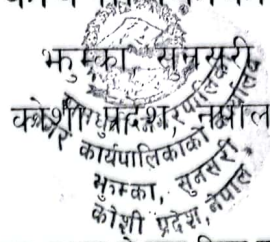 झुम्का, सुनसरी
कोशी प्रदेश, नेपाल
कार्यपालिकाको
झुम्का, सुनसरी
कोशी प्रदेश, नेपाल